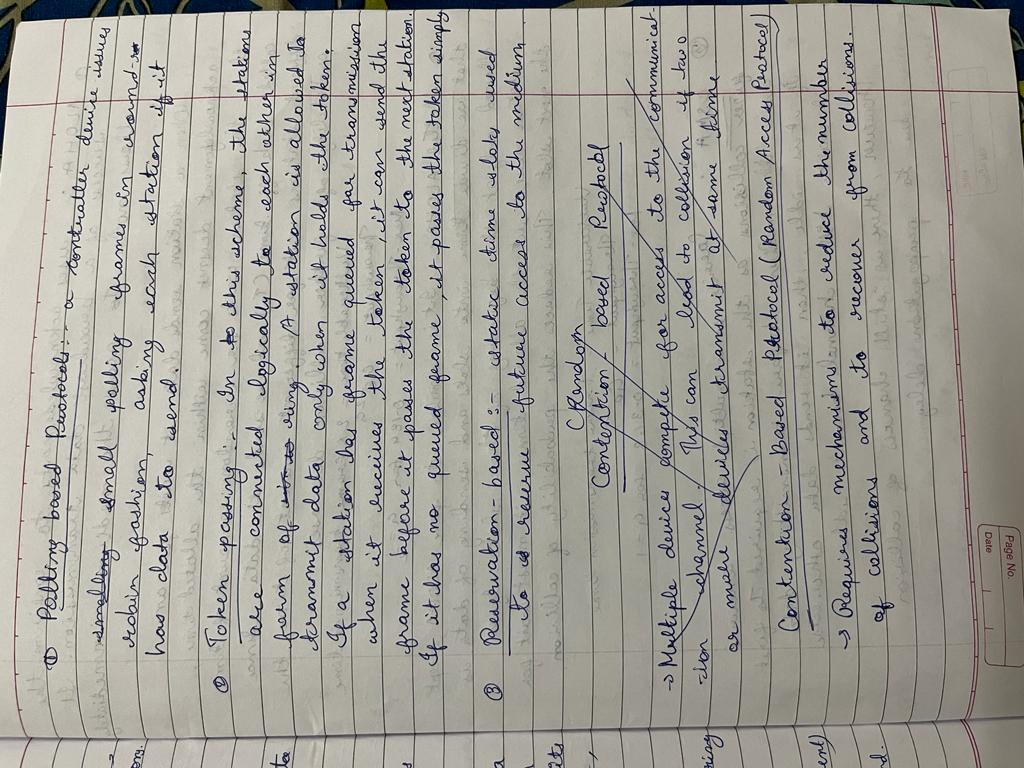 ① Polling based Protocols:- a controller device issues
smalling small polling frames in round-r
robin fashion, asking each station if it
has data to send.
② Token passing :- In to this scheme, the stations
are connected logically to each other in
form of ring. A station is allowed to
transmit data only when it holds the token.
If a station has frame queued for transmission
when it receives the token, it can send the
frame before it passes the token to the next station.
If it has no queued frame, it passes the token simply
③ Reservation-based :- static time slots used
to reserve future access to the medium.
(Random
Contention - based Protocol
→ Multiple devices compete for access to the communicat-
-ion channel. This can lead to collision if two
or more devices transmit at same time.
Contention - Based Protocol (Random Access Protocol)
→ Requires mechanisms to reduce the number
of collisions and to recover from collisions.
ory.
its
ring
ent)
nd.
Date
Page No.